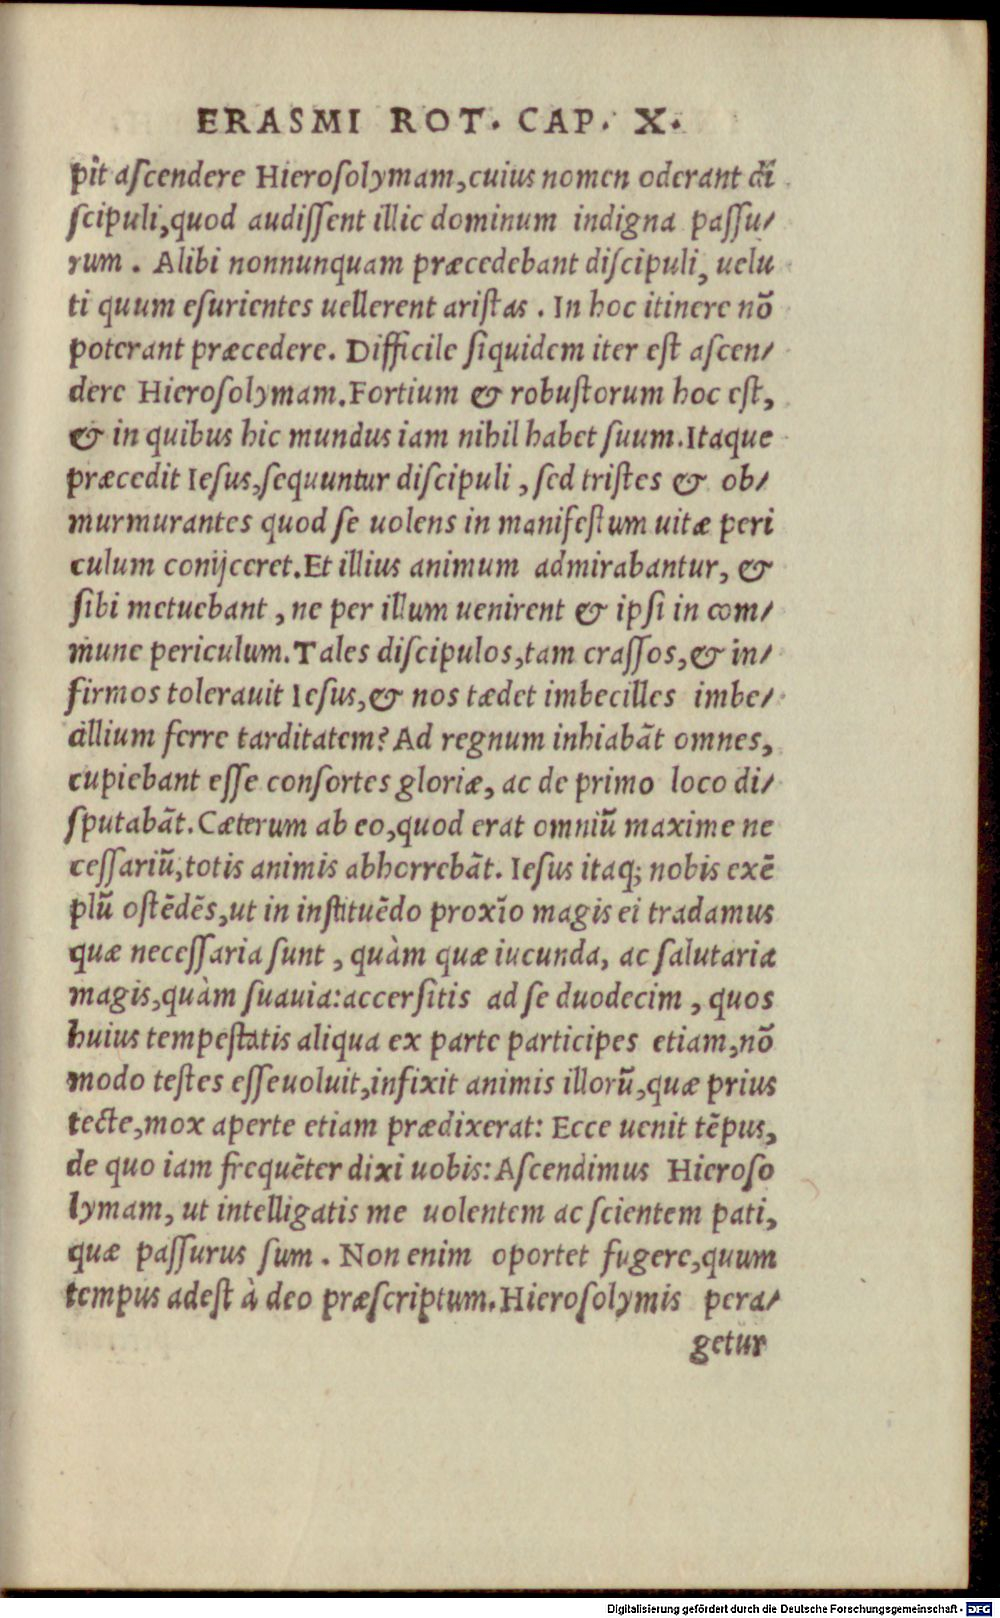 ERASMI ROT. CAP. X.
pit ascendere Hierosolymam,cuius nomen oderant di
scipuli,quod audissent illic dominum indigna passu/
rum. Alibi nonnunquam præcedebant discipuli, uelu
ti quum esurientes uellerent aristas. In hoc itinere nõ
poterant præcedere. Difficile siquidem iter est ascen/
dere Hierosolymam.Fortium & robustorum hoc est,
& in quibus hic mundus iam nihil habet suum.Itaque
præcedit Iesus,sequuntur discipuli, sed tristes & ob/
murmurantes quod se uolens in manifestum uitæ peri
culum conijceret.Et illius animum admirabantur, &
sibi metuebant, ne per illum uenirent & ipsi in com/
mune periculum.Tales discipulos,tam crassos,& in/
firmos tolerauit Iesus,& nos tædet imbecilles imbe/
cillium ferre tarditatem? Ad regnum inhiabãt omnes,
cupiebant esse consortes gloriæ, ac de primo loco di/
sputabãt. Cæterum ab eo,quod erat omniũ maxime ne
cessariũ,totis animis abhorrebãt. Iesus itaq; nobis exẽ
plũ ostẽdẽs,ut in instituẽdo proxĩo magis ei tradamus
quæ necessaria sunt, quàm quæ iucunda, ac salutaria
magis,quàm suauia:accersitis ad se duodecim, quos
huius tempestatis aliqua ex parte participes etiam,nõ
modo testes esseuoluit,infixit animis illorũ,quæ prius
tecte,mox aperte etiam prædixerat: Ecce uenit tẽpus,
de quo iam frequẽter dixi uobis:Ascendimus Hieroso
lymam, ut intelligatis me uolentem ac scientem pati,
quæ passurus sum. Non enim oportet fugere,quum
tempus adest à deo præscriptum.Hierosolymis pera/
getur
Digitalisierung gefördert durch die Deutsche Forschungsgemeinschaft - DFG